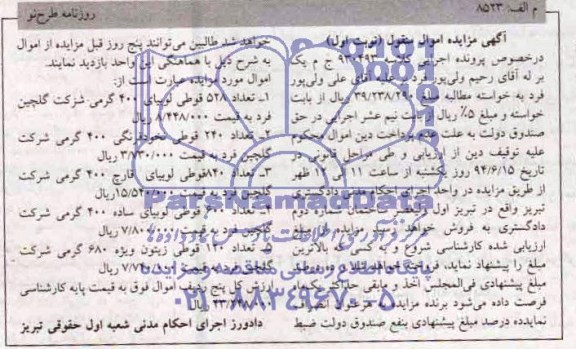 م الف: ۸۵۲۳
روزنامه طرح‌نو
آگهی مزایده اموال منقول (نوبت اول)
درخصوص پرونده اجرایی کلاسه ج م یک
بر له آقای رحیم ولی‌پور فرد علیه آقای علی ولی‌پور
فرد به خواسته مطالبه ۳۹/۲۳۸/۲۹۰ ریال از بابت
خواسته و مبلغ ۵٪ ریال از بابت نیم عشر اجرایی در حق
صندوق دولت به علت عدم پرداخت دین اموال محکوم
علیه توقیف دین از ارزیابی و طی مراحل قانونی در
تاریخ ۹۴/۶/۱۵ روز یکشنبه از ساعت ۱۱ الی ۱۲ ظهر
از طریق مزایده در واحد اجرای احکام مدنی دادگستری
تبریز واقع در تبریز اول ساختمان شماره دوم
دادگستری به فروش خواهد رسید مزایده از مبلغ
ارزیابی شده کارشناسی شروع و به کسی که بالاترین
مبلغ را پیشنهاد نماید، فروخته
مبلغ پیشنهادی فی‌المجلس اخذ و مابقی حداکثر یکماه
فرصت داده می‌شود برنده مزایده هرگاه
نمایدده درصد مبلغ پیشنهادی بنفع صندوق دولت ضبط
خواهد شد طالبین می‌توانند پنج روز قبل مزایده از اموال
به شرح ذیل با هماهنگی این واحد بازدید نمایند.
اموال مورد مزایده عبارت است از:
۱ـ تعداد ۵۲۸ قوطی لوبیای ۴۰۰ گرمی شرکت گلچین
فرد به قیمت ۸/۴۴۸/۰۰۰ ریال
۲ـ تعداد ۲۴۰ قوطی نخودفرنگی ۴۰۰ گرمی شرکت
گلچین فرد به قیمت ریال
۳ـ تعداد قوطی لوبیای قارچ ۴۰۰ گرمی شرکت
گلچین فرد به قیمت ۱۵/۵۴۰/۰۰۰ ریال
۴ـ تعداد قوطی لوبیای ساده ۴۰۰ گرمی شرکت
گلچین فرد به قیمت ریال
۵ـ تعداد ۱۲۰ قوطی زیتون ویژه ۶۸۰ گرمی شرکت
گلچین فرد به قیمت ریال
ارزش کل پنج ردیف اموال فوق به قیمت پایه کارشناسی
ریال
دادورز اجرای احکام مدنی شعبه اول حقوقی تبریز
ParsNamadData
مرکز فرآوری اطلاعات پارس نماد داده‌ها
پایگاه اطلاع رسانی مناقصه و مزایده
۰۲۱-۸۸۳۴۹۶۷۰-۵